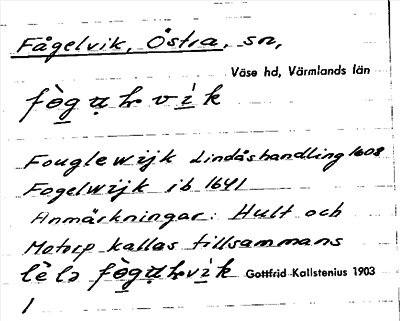 Fågelvik, Östra, sn,
Väse hd, Värmlands län
Fouglewijk Lindåshandling 1608
Fogelwijk ib 1641
Anmärkningar: Hult och
Motorp kallas tillsammans
Gottfrid Kallstenius 1903